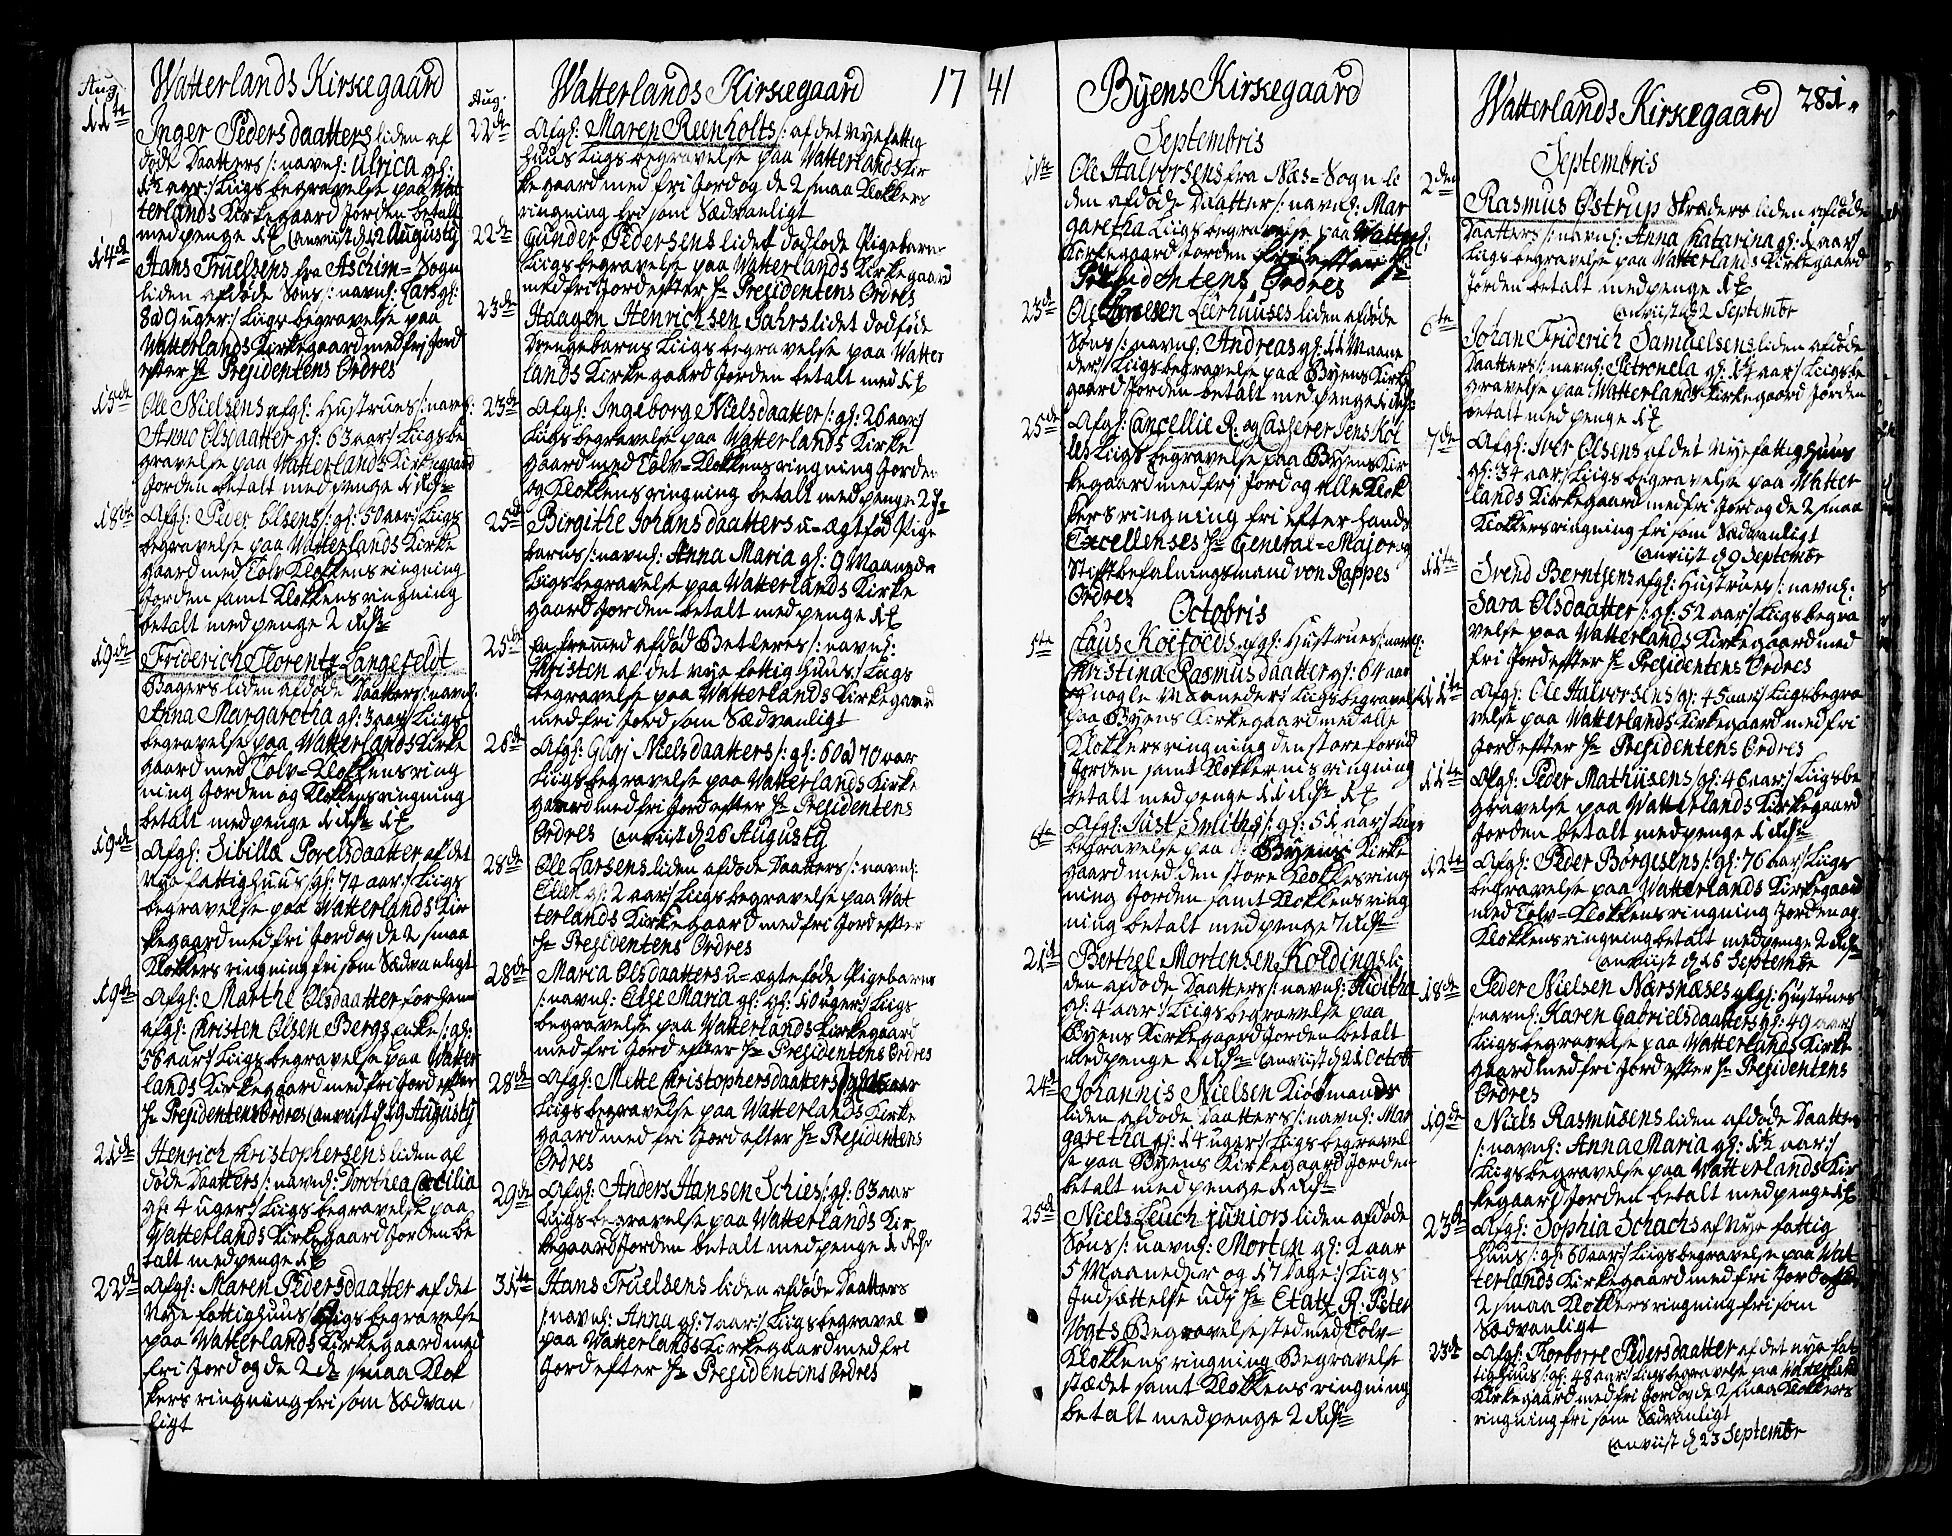 Aug:
Watterlands Kirkegaard
11te Inger Pedersdaatters liden af
døde Daatters /: navnl: Ulrica gl:
1½ aar :/ Liigs begravelse paa Wat
terlands Kirkegaard Jorden betalt
med penge
Anviist d 12 Augusty
14de Hans Truelsens fra Aschim=Sogn
liden afdøde Søns /: navnl: Lars gl:
8 a 9 uger :/ Liigs begravelse paa
Watterlands Kirkegaard med fri Jord
efter Hr Presidentens Ordres
15de Ole Nielsens afgl: Hustrues /: navnl:
Anne Olsdaatter gl: 63 aar :/ Liigs be
gravelse paa Watterlands Kirkegaard
Jorden betalt med penge 1 Rdr
18de Afgl: Peder Olsens /: gl: 50 aar :/ Liigs
begravelse paa Watterlands Kirke
gaard med Tolv Klokkens ringning
Jorden samt Klokkens ringning
betalt med penge 2 Rdr
19de Friderich Florentz Langefeldt
Bagers liden afdøde Daatters /: navnl:
Anna Margaretha gl: 3 aar :/ Liigs
begravelse paa Watterlands Kirke
gaard med Tolv=Klokkens ring
ning Jorden og Klokkens ringning
betalt med penge 1 Rdr
19de Afgl: Sibilla Povelsdaatter af det
Nye fattighuus /: gl: 74 aar :/ Liigs
begravelse paa Watterlands Kir
kegaard med fri Jord og de 2 smaa
Klokkers ringning fri som Sædvanligt
19de Afgl: Marthe Olsdaatter
afgl: Kristen Olsen Bergs enke /: gl:
56 aar :/ Liigs begravelse paa Watter
lands Kirkegaard med fri Jord efter
Hr Presidentens Ordres Anviist d 19 Augusty
21de Henrich Kristophersens liden af
døde Daatters /: navnl: Dorothea Cæcilia
gl: 4 uger :/ Liigs begravelse paa
Watterlands Kirkegaard Jorden be
talt med penge
22de Afgl: Maren Pedersdaatter af det
Nye fattighuus :/ Liigs begravelse
paa Watterlands Kirkegaard med
fri Jord og de 2de smaa Klok
kers ringning fri som Sædvan
ligt
Aug:
Watterlands Kirkegaard 17
22de Afgl: Maren Reenholts /: af det Nye fattig
huus Liigs begravelse paa Watterlands Kir
kegaard med fri Jord og de 2 smaa Klokkers
ringning fri som Sædvanligt
22de Gunder Pedersens lidet dødfødde Pigebarns
Liigs begravelse paa Watterlands Kirkegaard
med fri Jord efter Hr Presidentens Ordres
23de Haagen Henrichsen Jahrs lidet dødføde
Drengebarns Liigs begravelse paa Watter
lands Kirkegaard Jorden betalt med
23de Afgl: Ingeborge Nielsdaatter /: gl: 26 aar :/
Liigs begravelse paa Watterlands Kirke
gaard med Tolv=Klokkens ringning Jorden
og Klokkens ringning betalt med penge 2
25de Birgithe Johansdaatters u=ægtefød Pige
barns /: navnl: Anna Maria gl: 9 Maaneder
Liigs begravelse paa Watterlands Kirke
gaard Jorden betalt med penge
25de En fremmed afdød Betleres /: navnl:
Kristen af det nye fattighuus :/ Liigs
begravelse paa Watterlands Kirkegaard
med fri Jord som Sædvanligt
26de Afgl: Guri Nielsdaatters /: gl: 60 a 70 aar
Liigs begravelse paa Watterlands Kirke
gaard med fri Jord efter Hr Presidentens
Ordres Anviist d 26 Augusty
28de Ole Larsens liden afdøde Daatters /: navnl:
Ellen gl: 2 aar :/ Liigs begravelse paa Wat
terlands Kirkegaard med fri Jord efter
Hr Presidentens Ordres
28de Maria Olsdaatters u=ægteføde Pigebarns
/: navnl: Else Maria gl: gl: 10 uger :/ Liigs
begravelse paa Watterlands Kirkegaard
med fri Jord efter Hr Presidentens Ordres
28de Afgl: Mette Kristophersdaatters
Liigs begravelse paa Watterlands Kirke
gaard med fri Jord efter Hr Presidentens
Ordres
29de Afgl: Anders Hansen Schies /: gl: 63 aar
Liigs begravelse paa Watterlands Kir
kegaard Jorden betalt med penge 1 Rdr
31te Hans Truelsens liden afdøde Daatters
/: navnl: Anna gl: 7 aar :/ Liigs begravel
paa Watterlands Kirkegaard med fri
Jord efter Hr Presidentens Ordres
41 Byens Kirkegaard
Septembris
1ste Ole Halvorsens fra Næs=Sogn li
den afdøde Daatters /: navnl: Mar
garetha Liigs begravelse paa Watterl:
Kirkegaard Jorden fri efter Hr
Presidentens Ordres
23de Ole Leerhuuses liden afdøde
Søns /: navnl: Andreas gl: 11 Maane
der :/ Liigs begravelse paa Byens Kirke
gaard Jorden betalt med penge 1 Rdr
25de Afgl: Cancellie R. og Casserer Jens Kol
Liigs begravelse paa Byens Kir
kegaard med fri Jord og Alle Klok
kers ringning fri efter hands
Excellenses Hr General=Major og
Stiftbefalningsmand von Rappes
Ordres
Octobris
5te Claus Kolfoeds afgl: Hustrues /: navnl:
Kristina Rasmusdaatter gl: 64 aar
og nogle Maaneder :/ Liigs begravelse
paa Byens Kirkegaard med alle
Klokkers ringning den store forud
Jorden samt Klokkernis ringning
betalt med penge 11 Rdr
6te Afgl: Just Smiths /: gl: 51 aar :/ Liigs
begravelse paa Byens Kirke
gaard med den store Klokkes ring
ning Jorden samt Klokkens ring
ning betalt med penge 7 Rdr
21de Berthel Mortensen Koldings li
den afdøde Daatters /: navnl: Hiditha
gl: 4 aar :/ Liigs begravelse paa
Byens Kirkegaard Jorden betalt
med penge 1 Rdr Anviist d 21 Octobr
24de Johannis Nielsen Kiøbmands
liden afdøde Daatters /: navnl: Mar
garetha gl: 14 uger :/ Liigs begravel
se paa Byens Kirkegaard Jorden
betalt med penge 1 Rdr
25de Niels Leuch juniors liden afdøde
Søns /: navnl: Morten gl: 2 aar
5 Maaneder og 17 dage :/ Liigs
Indsættelse udj Hr Etatz R. Peter
Vogts Begravelse sted med Tolv=
Klokkens ringning Begravelse
stædet samt Klokkens ringning
betalt med penge 2 Rdr
Watterlands Kirkegaard 281.
Septembris
2den Rasmus Østrup Skræders liden afdøde
Daatters /: navnl: Anna Catarina gl: 1 aar :/
Liigs begravelse paa Watterlands Kirkegaard
Jorden betalt med penge
Anviist d 2 Septembr
6te Johan Friderich Samuelsens liden afdøde
Daatters /: navnl: Petronela gl: 1¼ aar :/ Liigs be
gravelse paa Watterlands Kirkegaard Jorden
betalt med penge
7de Afgl: Iver Olsens af det Nye fattighuus
gl: 34 aar :/ Liigs begravelse paa Watter
lands Kirkegaard med fri Jord og de 2 smaa
Klokkers ringning fri som Sædvanligt
Anviist d 9 Septembr
11te Svend Berntsens afgl: Hustrues /: navnl:
Sara Olsdaatter /: gl: 52 aar :/ Liigs begra
velse paa Watterlands Kirkegaard med
fri Jord efter Hr Presidentens Ordres
11te Afgl: Ole Halvorsens gl: 45 aar :/ Liigs begra
velse paa Watterlands Kirkegaard med fri
Jord efter Hr Presidentens Ordres
11te Afgl: Peder Mathiisens /: gl: 46 aar :/ Liigs be
gravelse paa Watterlands Kirkegaard
Jorden betalt med penge 1 Rdr
12te Afgl: Peder Børgesens /: gl: 76 aar :/ Liigs
begravelse paa Watterlands Kirkegaard
med Tolv=Klokkens ringning Jorden og
Klokkens ringning betalt med penge 2 Rdr
Anviist d 16 Septembr
18de Peder Nielsen Nærsnæses afgl: Hustrues
/: navnl: Karen Gabrielsdaatters gl: 49 aar :/
Liigs begravelse paa Watterlands Kirke
gaard med fri Jord efter Hr Presidentens
Ordres
19de Niels Rasmusens liden afdøde Daatters
/: navnl: Anna Maria gl: 1½ aar :/
Liigs begravelse paa Watterlands Kir
kegaard Jorden betalt med penge
23de Afgl: Sophia Schachs af Nye fattig
huus /: gl: 60 aar :/ Liigs begravelse paa Wat
terlands Kirkegaard med fri Jord og de
2 smaa Klokkers ringning fri som
Sædvanligt
23de Afgl: Torborre Pedersdaatter af det nye fat
tighuus /: gl: 48 aar :/ Liigs begravelse paa Watterlands
Kirkegaard med fri Jord og de 2 smaa Klokkers
ringning fri som Sædvanligt
Anviist d 23 Septembr